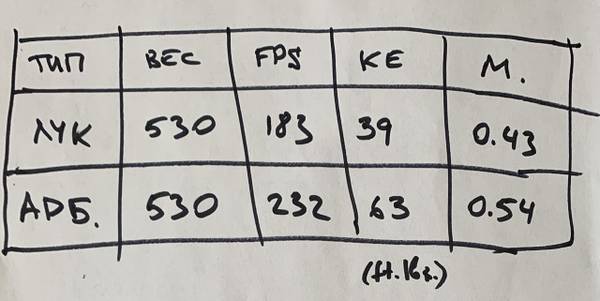 ТИП ВЕС FPS KE М.
ЛУК 530 183 39 0.43
АРБ. 530 232 63 0.54
(ft.lbs.)